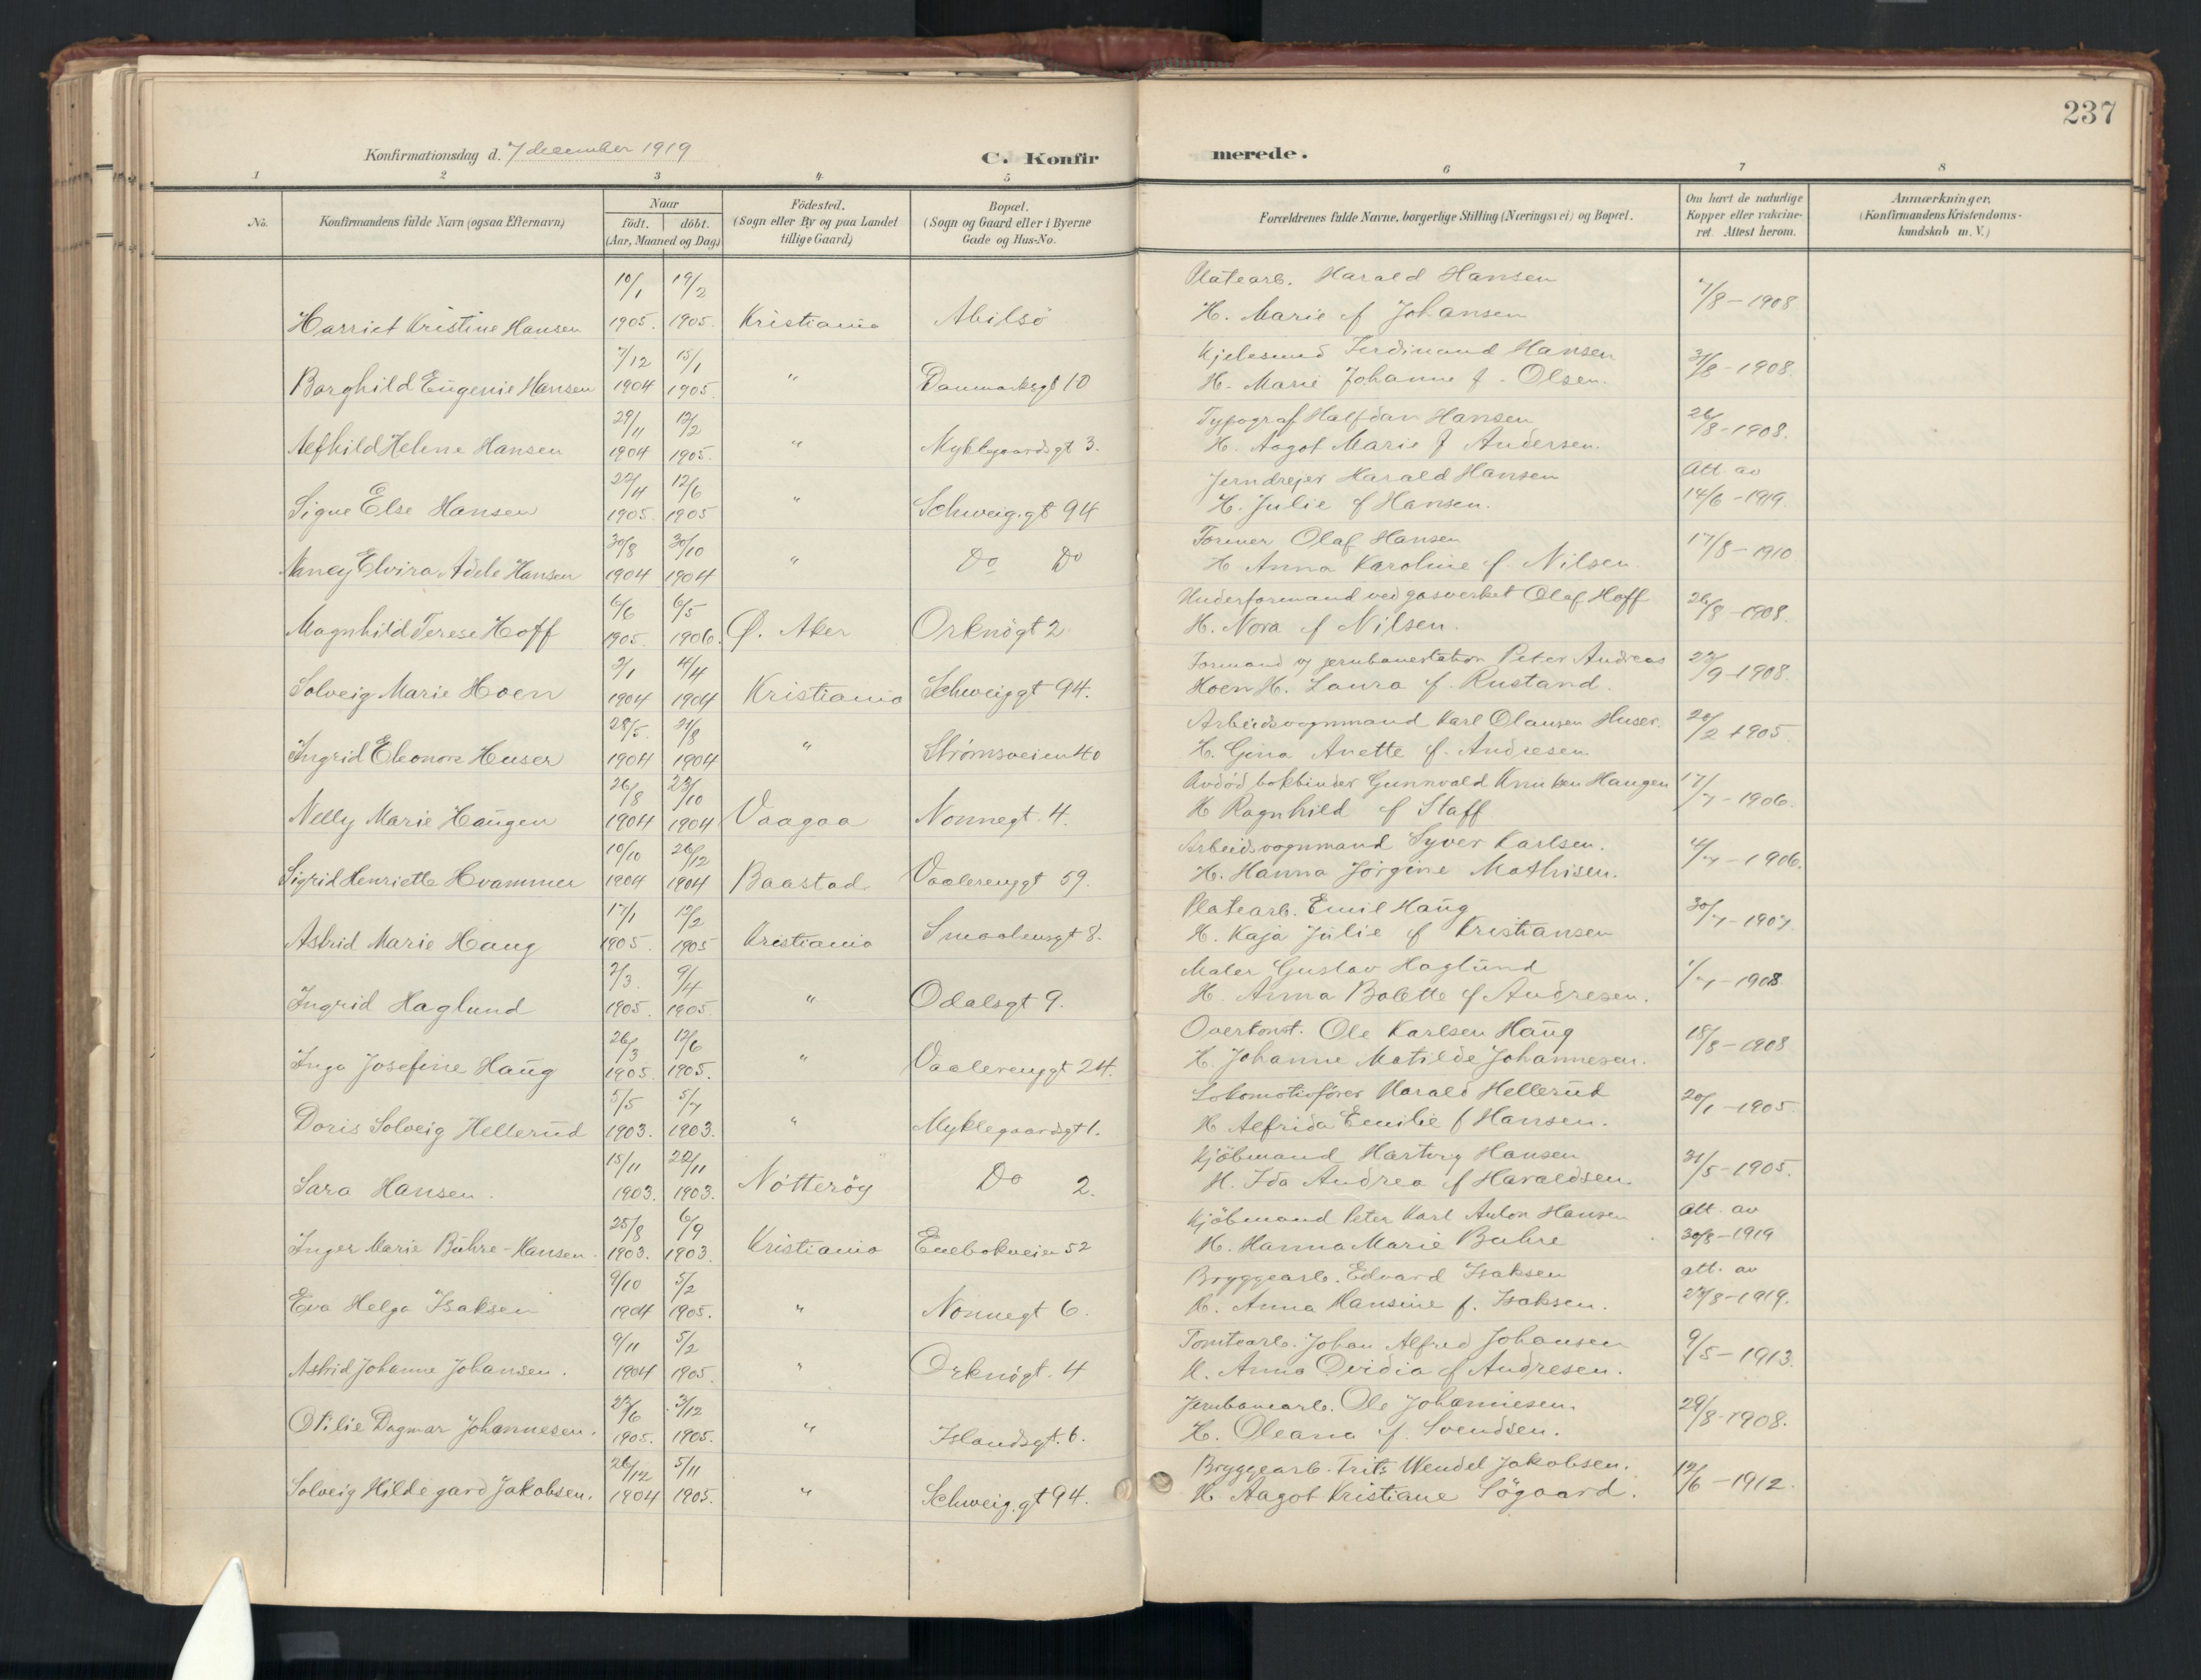 237
Konfirmationsdag d. 7 december 1919
C. Konfir merede.
1 2 3 4 5 6 7 8
No.
Konfirmandens fulde Navn (ogsaa Efternavn)
Naar
födt. döbt.
(Aar, Maaned og Dag)
Födested.
(Sogn eller By og paa Landet
tillige Gaard)
Bopæl.
(Sogn og Gaard eller i Byerne
Gade og Hus-No.
Forældrenes fulde Navne, borgerlige Stilling (Næringsvei) og Bopæl.
Om havt de naturlige
Kopper eller vakcine-
ret. Attest herom.
Anmærkninger.
(Konfirmandens Kristendoms-
kundskab m. V.)
10/1 19/2 Platearb. Harald Hansen
Harriet Kristine Hansen 1905. 1905. Kristiania Abilsö H. Marie f Johansen 7/8-1908
7/12 15/1 Kjelesmed Ferdinand Hansen
Borghild Eugenie Hansen 1904 1905. " Danmarksgt 10 H. Marie Johanne f. Olsen. 31/8-1908.
29/11 12/2 Typograf Halfdan Hansen
Alfhild Helene Hansen 1904 1905. " Myklegaardsgt 3. H. Aagot Marie f Andersen. 26/8-1908.
12/6 Jerndrejer Harald Hansen Att. av
Signe Else Hansen 1905. 1905 " Schweig.gt 94 H. Julie f Hansen. 14/6-1919.
30/8 30/10 Former Olaf Hansen
Nancy Elvira Adele Hansen 1904 1904 " Do Do H Anna Karoline f. Nilsen. 17/8-1910
6/6 6/5 Underformand ved gasverket Olaf Hoff
Magnhild Terese Hoff 1905. 1906. Ø. Aker Orknögt 2 H. Nora f Nilsen. 26/8-1908.
2/1 4/4 Formand og jernbanestation Peter Andreas
Solveig Marie Hoen 1904 1904 Kristiania Schweiggt 94. Hoen H. Laura f. Rustand. 22/9-1908.
28/5. 21/8 Arbeidsvognmand Karl Olausen Huser.
Ingrid Eleonore Huser 1904 1904 " Strømsveien 40 H. Gina Anette f. Andresen 20/2 1905.
26/8 23/10 Avdöd bokbinder Gunnvald Knutsen Haugen
Nelly Marie Haugen 1904 1904 Vaagaa Nonnegt. 4. H Ragnhild f Staff 17/7-1906.
10/10 26/12 Arbeidsvognmand Syver Karlsen.
Sigrid Henriette Hvammer 1904 1904 Baastad Vaalerenggt 59. H. Hanna Jörgine Mathisen. 4/7-1906.
17/1 12/2 Platearb. Emil Haug
Astrid Marie Haug 1905. 1905 Kristiania Smaalensgt 8. H. Kaja Julie f Kristiansen 30/7-1907.
2/3. 9/4 Maler Gustav Haglund
Ingrid Haglund 1905. 1905. " Odalsgt 9. H. Anna Bolette f Andresen. 1/7-1908.
26/3 12/6 Overkonst. Ole Karlsen Haug
Inga Josefine Haug 1905. 1905. " Vaalerenggt 24. H. Johanne Matilde Johannesen. 18/8-1908
5/5 5/7 Lokomotivförer Harald Hellerud
Doris Solveig Hellerud 1903. 1903. " Myklegaardsgt 1. H Alfrida Emilie f Hansen. 20/1-1905.
15/11 22/11 Kjöbmand Hartvig Hansen
Sara Hansen. 1903. 1903. Nötteröy Do 2. H. Ida Andrea f Haraldsen. 31/5-1905.
25/8 6/9 Kjöbmand Peter Karl Anton Hansen att. av
Inger Marie Buhre-Hansen. 1903. 1903. Kristiania Enebakveien 52 H. Hanna Marie Buhre 30/8-1919
9/10 5/2 Bryggearb. Edvard Isaksen att. av
Eva Helga Isaksen 1904 1905. " Nonnegt 6. H. Anna Hansine f. Isaksen. 27/8-1919.
9/11 5/2 Tomtearb. Johan Alfred Johansen
Astrid Johanne Johansen. 1904 1905. " Orknögt. 4 H. Anna Ovidia f Andresen. 9/5-1913.
27/6 3/12 Jernbanearb. Ole Johannesen
Otilie Dagmar Johannesen. 1905. 1905. " Islandsgt. 6. H. Oleana f. Svendsen. 29/8-1908.
26/12 5/11 Bryggearb. Frits Wendel Jakobsen.
Solveig Hildegard Jakobsen. 1904 1905. " Schweig.gt 94. H. Aagot Kristiane Sögaard. 12/6-1912.